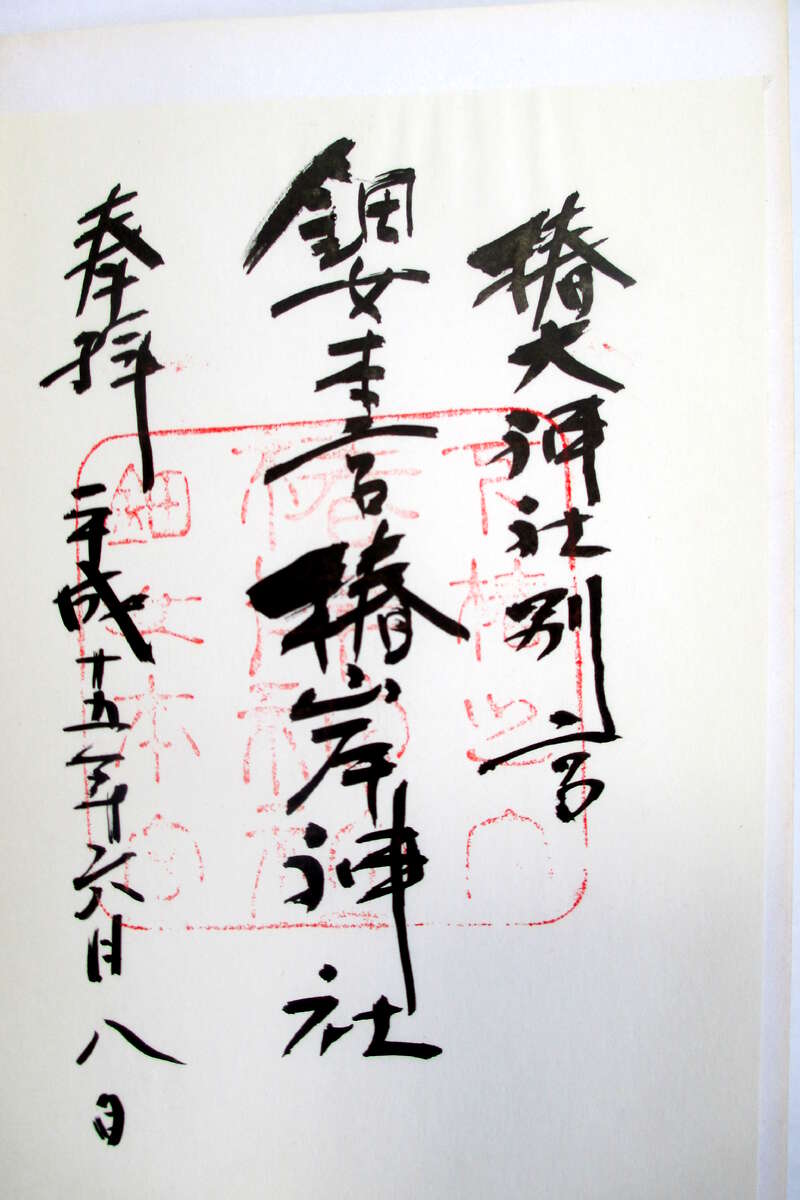 椿大神社別宮
鈿女本宮椿岸神社
奉拝 平成十五年六月八日